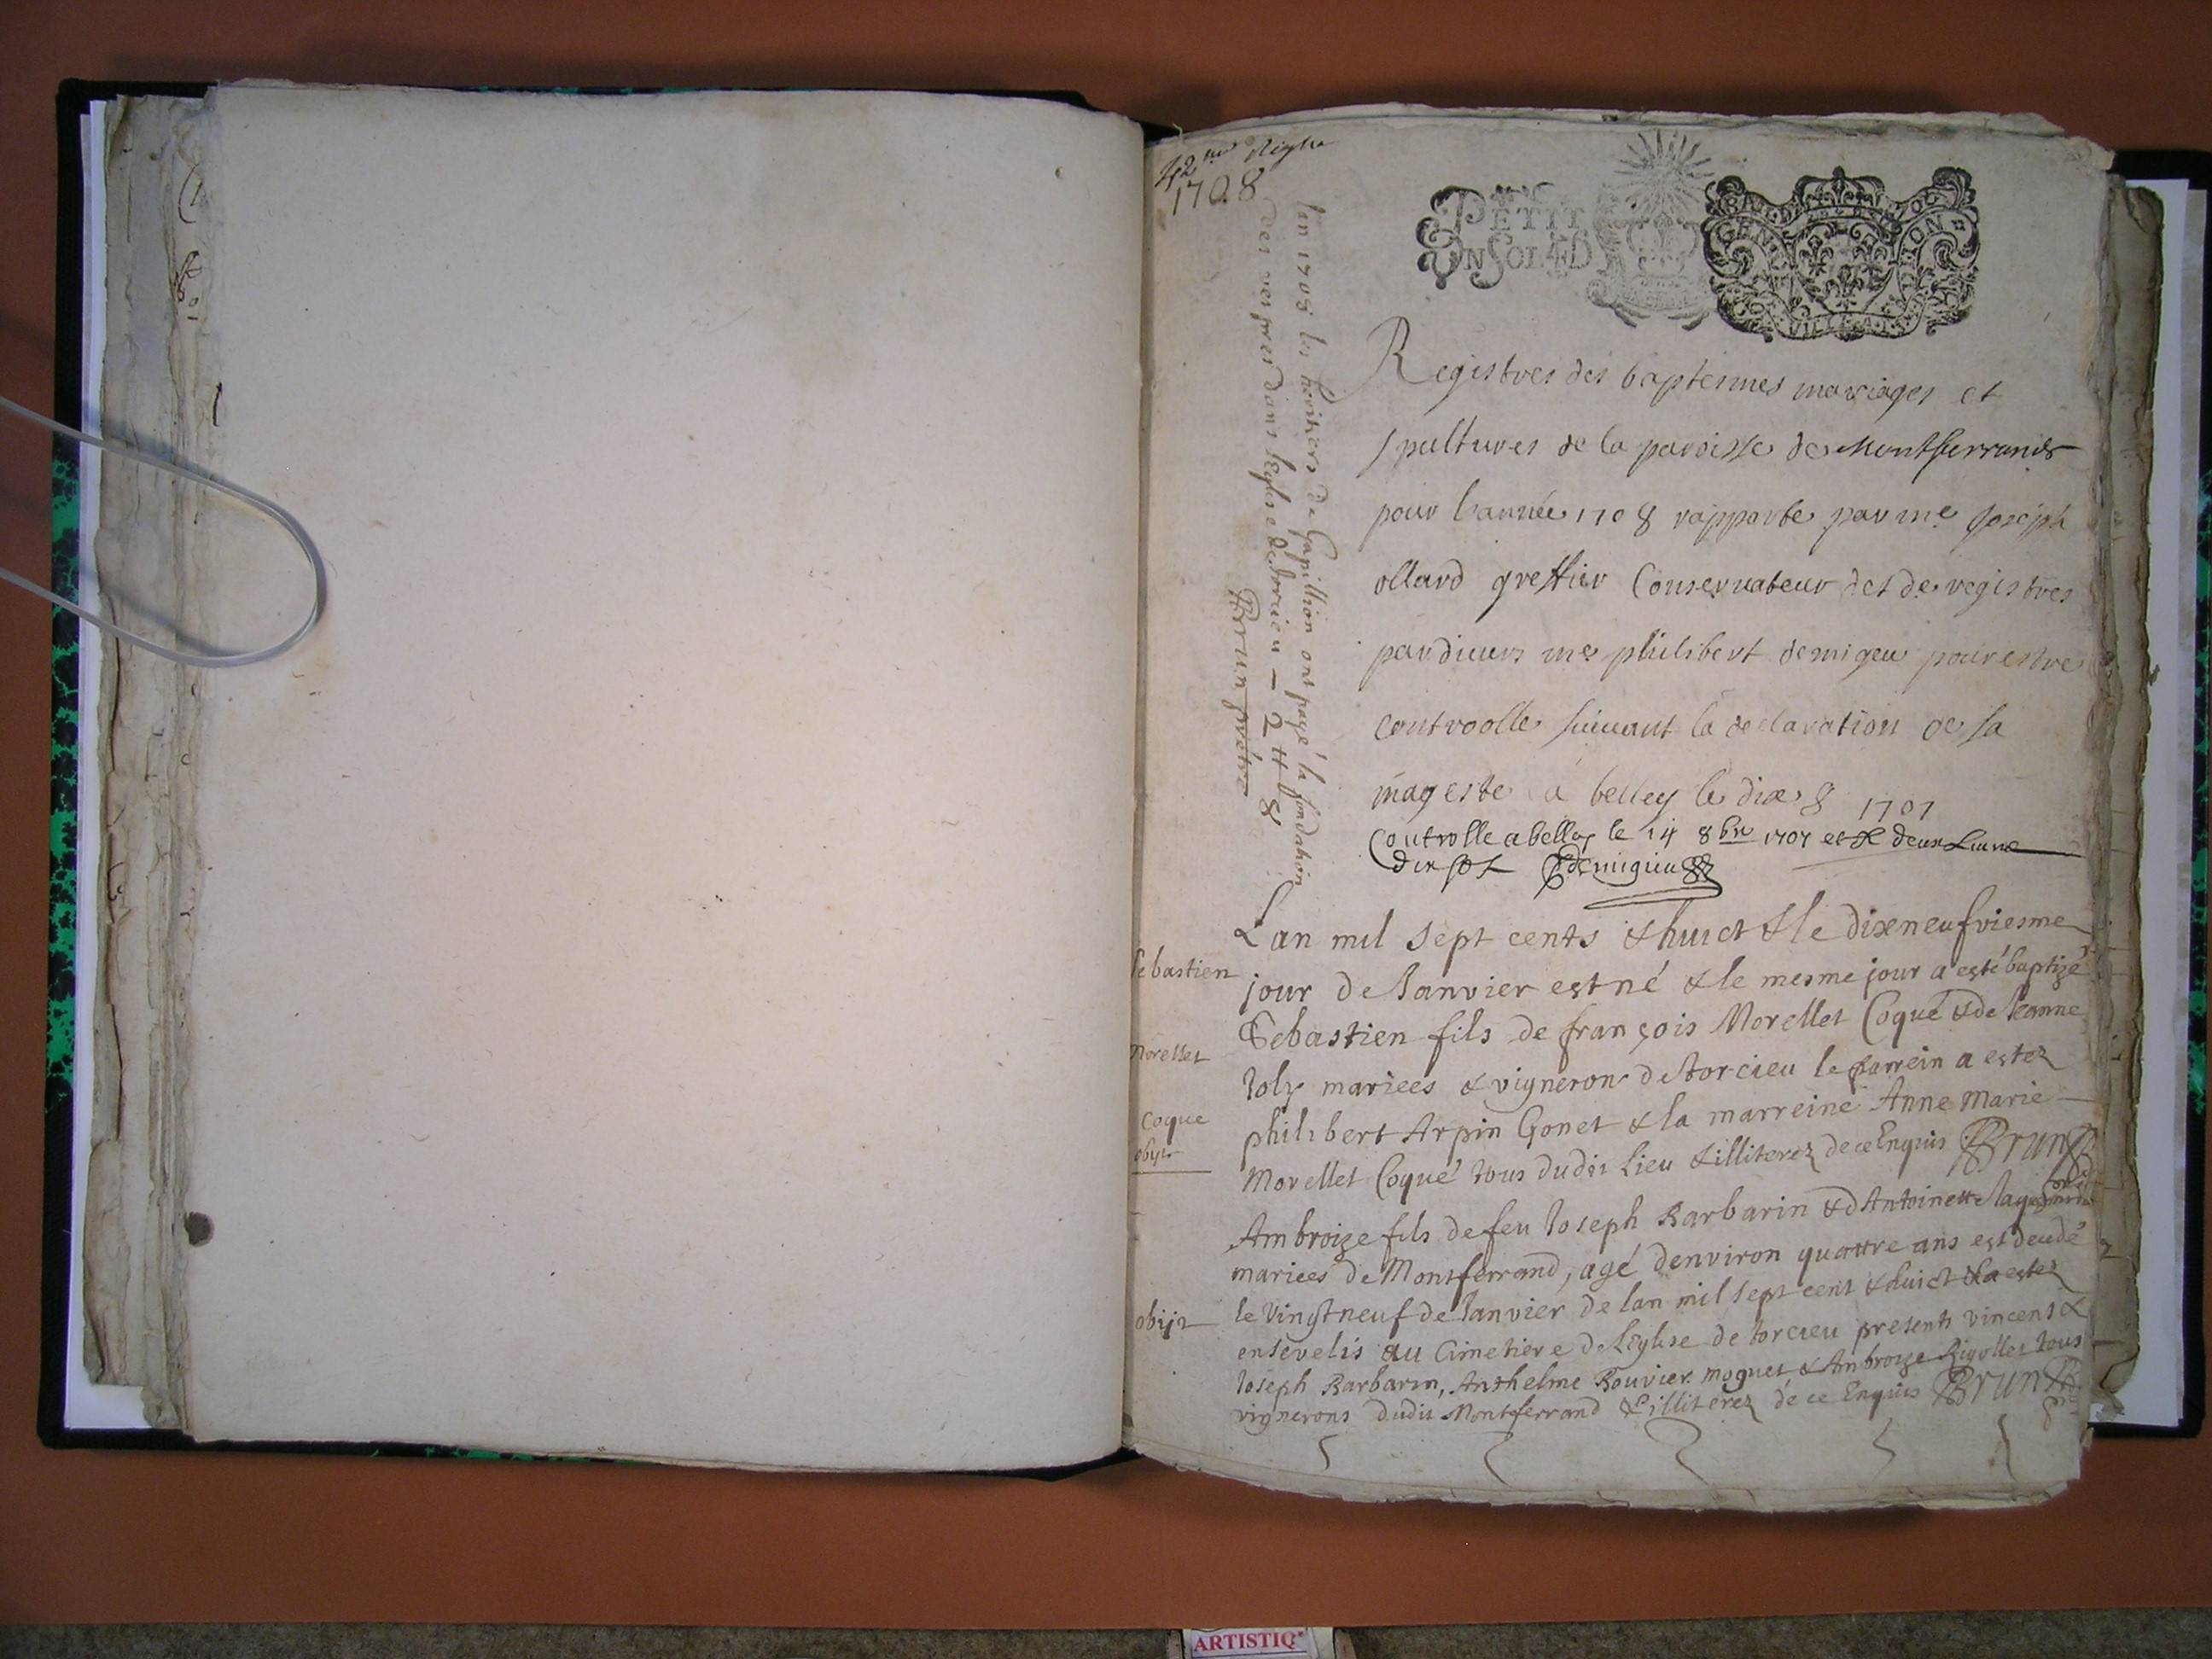 42me
1708
lan 1708 les heritiers de Gapillion ont payé la fondation
des vespres dans leglise de torcieu — 2 ℔ 8
Brun prêtre
PETIT
UN SOL 4 D
GEN
Registres des baptesmes mariages et
spultures de la paroisse de Montferrand
pour l'année 1708 rapporté par me Joseph
ollard greffier Conservateur des de registres
par dieurs me philibert demigeu pour estre
controolle suivant la declaration de sa
mageste a belley le dix 8 1707
Controlle a belley le 14 8bre 1707 et deux Livre
dix sol demigieu
Sebastien
Morellet
Coque
obijt
Lan mil sept cents & huict & le dixneufviesme
jour de Janvier est né & le mesme jour a esté baptizé
Sebastien fils de françois Morellet Coque & de Jeanne
Joly mariees & vigneron de torcieu le parrein a estez
philibert Arpin Gonet & la marreine Anne Marie
Morellet Coqué tous dudit Lieu & illiterez de ce Enquis Brun
Ambroize fils de feu Joseph Barbarin & d Antoinette
mariees de Montferrand, agé denviron quattre ans est decedé
obijt
le vingt neuf de Janvier de lan mil sept cent & huict & a estez
ensevelis au Cimetiere de leglise de torcieu presents vincent &
Joseph Barbarin, Anthelme Bouvier moguet & Ambroize Rigollet tous
vignerons dudit Montferrand & illiterez de ce Enquis Brun
ARTISTIQ